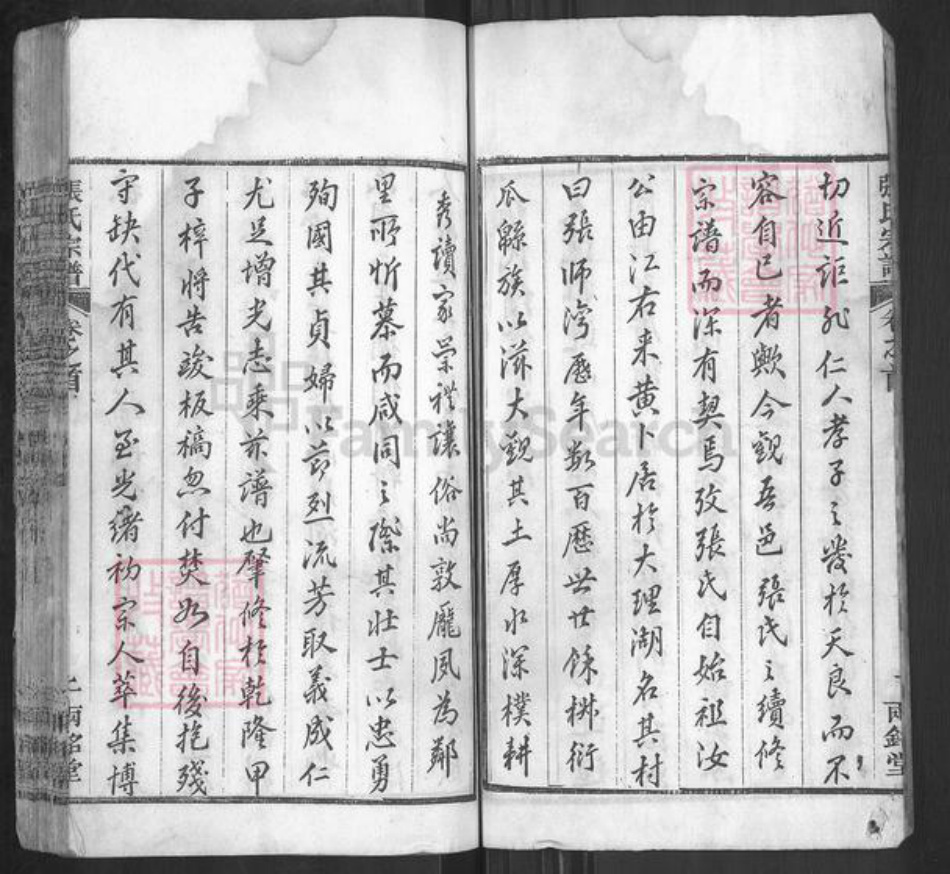 切近詎非仁人孝子之發於天良而不
容自已者歟今觀吾邑張氏之續修
宗譜而深有契焉攷張氏自始祖汝
公由江右来黄卜居於大理湖名其村
曰張師灣歷年數百歷世廿餘椒衍
瓜緜族以滋大觀其土厚水深樸耕
秀讀家崇禮讓俗尚敦龐風為鄰
里所忻慕而咸同之際其壮士以忠勇
殉國其貞婦以節烈流芳取義成仁
尤足增光志乘茲譜也肇修於乾隆甲
子梓将告竣板稿忽付焚如自後抱殘
守缺代有其人至光緒初宗人萃集博
張氏宗譜
卷之首
兩銘堂
FamilySearch